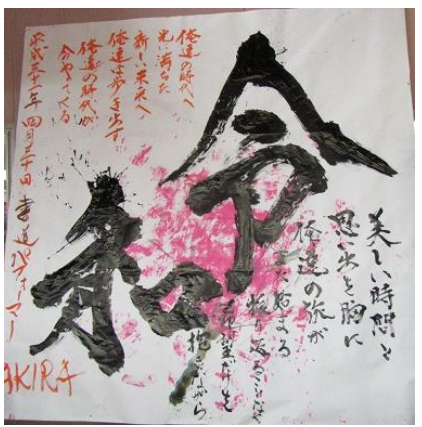 令和
美しい時間と
思い出を胸に
俺達の旅が
始まる
振り返ることなく
抱きながら
俺達の時代へ
光に満ちた
新しい未来へ
俺達は歩き出す
俺達の時代が
今やってくる
平成三十一年 四月三十日 書道パフォーマー
AKIRA